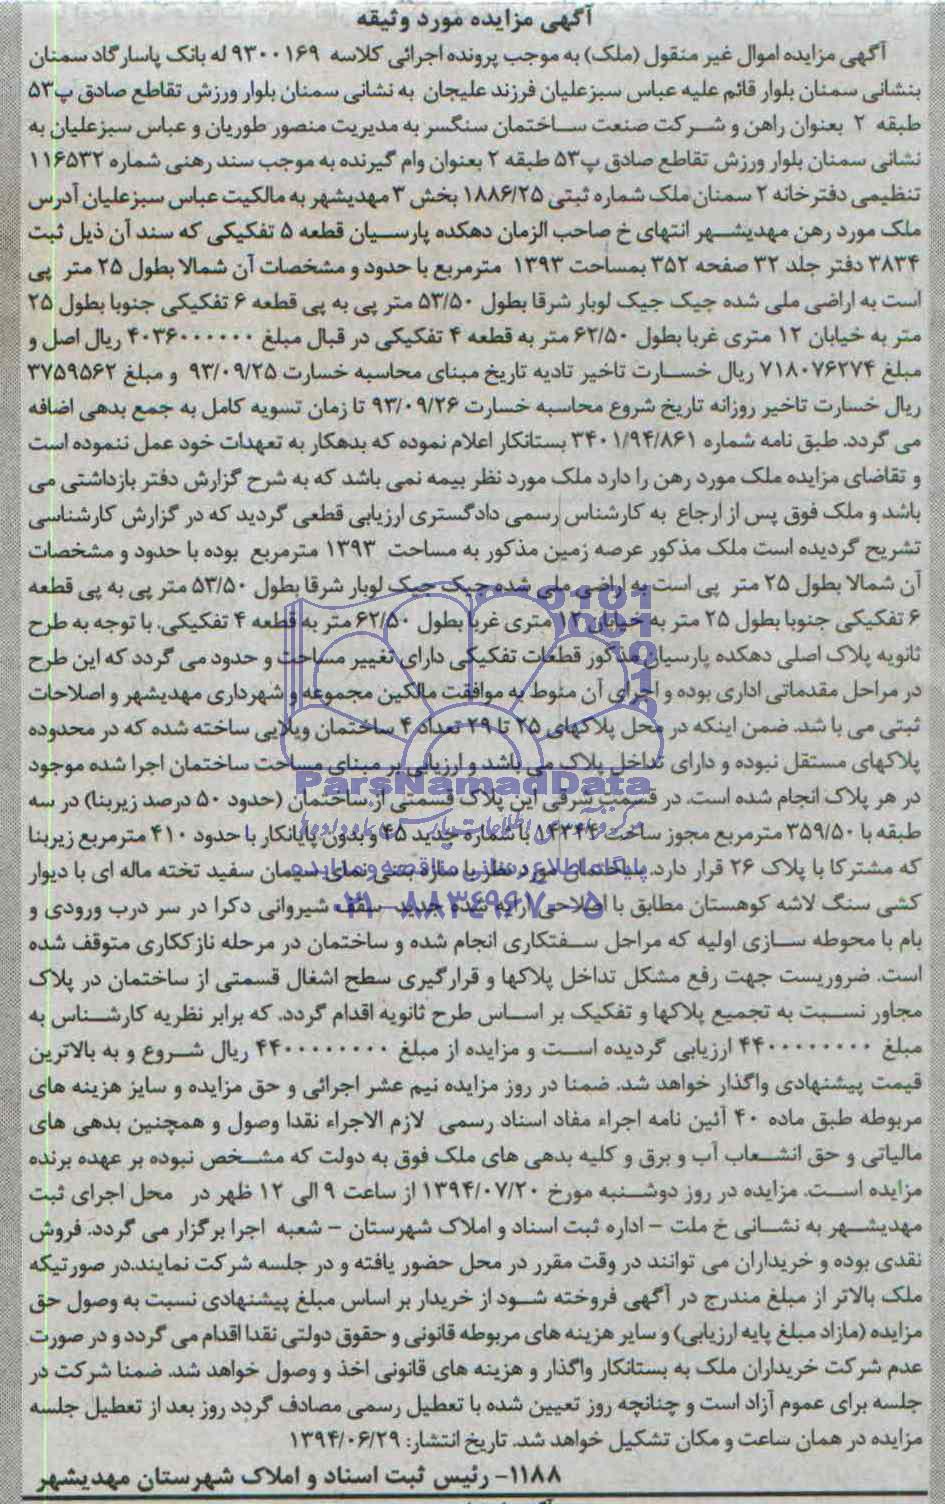 آگهی مزایده مورد وثیقه
آگهی مزایده اموال غیر منقول (ملک) به موجب پرونده اجرائی کلاسه ۹۳۰۰۱۶۹ له بانک پاسارگاد سمنان
بنشانی سمنان بلوار قائم علیه عباس سبزعلیان فرزند علیجان به نشانی سمنان بلوار ورزش تقاطع صادق پ۵۳
طبقه ۲ بعنوان راهن و شرکت صنعت ساختمان سنگسر به مدیریت منصور طوریان و عباس سبزعلیان به
نشانی سمنان بلوار ورزش تقاطع صادق پ۵۳ طبقه ۲ بعنوان وام گیرنده به موجب سند رهنی شماره ۱۱۶۵۳۲
تنظیمی دفترخانه ۲ سمنان ملک شماره ثبتی ۱۸۸۶/۲۵ بخش ۳ مهدیشهر به مالکیت عباس سبزعلیان آدرس
ملک مورد رهن مهدیشهر انتهای خ صاحب الزمان دهکده پارسیان قطعه ۵ تفکیکی که سند آن ذیل ثبت
۳۸۳۴ دفتر جلد ۳۲ صفحه ۳۵۲ بمساحت ۱۳۹۳ مترمربع با حدود و مشخصات آن شمالا بطول ۲۵ متر پی
است به اراضی ملی شده جیک جیک لوبار شرقا بطول ۵۳/۵۰ متر پی به پی قطعه ۶ تفکیکی جنوبا بطول ۲۵
متر به خیابان ۱۲ متری غربا بطول ۶۲/۵۰ متر به قطعه ۴ تفکیکی در قبال مبلغ ۴۰۳۶۰۰۰۰۰۰ ریال اصل و
مبلغ ۷۱۸۰۷۶۲۷۴ ریال خسارت تاخیر تادیه تاریخ مبنای محاسبه خسارت ۹۳/۰۹/۲۵ و مبلغ ۳۷۵۹۵۶۲
ریال خسارت تاخیر روزانه تاریخ شروع محاسبه خسارت ۹۳/۰۹/۲۶ تا زمان تسویه کامل به جمع بدهی اضافه
می گردد. طبق نامه شماره ۳۴۰۱/۹۴/۸۶۱ بستانکار اعلام نموده که بدهکار به تعهدات خود عمل ننموده است
و تقاضای مزایده ملک مورد رهن را دارد ملک مورد نظر بیمه نمی باشد که به شرح گزارش دفتر بازداشتی می
باشد و ملک فوق پس از ارجاع به کارشناس رسمی دادگستری ارزیابی قطعی گردید که در گزارش کارشناسی
تشریح گردیده است ملک مذکور عرصه زمین مذکور به مساحت ۱۳۹۳ مترمربع بوده با حدود و مشخصات
آن شمالا بطول ۲۵ متر پی است به اراضی ملی شده جیک جیک لوبار شرقا بطول ۵۳/۵۰ متر پی به پی قطعه
۶ تفکیکی جنوبا بطول ۲۵ متر به خیابان ۱۲ متری غربا بطول ۶۲/۵۰ متر به قطعه ۴ تفکیکی. با توجه به طرح
ثانویه پلاک اصلی دهکده پارسیان مذکور قطعات تفکیکی دارای تغییر مساحت و حدود می گردد که این طرح
در مراحل مقدماتی اداری بوده و اجرای آن منوط به موافقت مالکین مجموعه و شهرداری مهدیشهر و اصلاحات
ثبتی می با شد. ضمن اینکه در محل پلاکهای ۲۵ تا ۲۹ تعداد ۴ ساختمان ویلایی ساخته شده که در محدوده
پلاکهای مستقل نبوده و دارای تداخل پلاک می باشد و ارزیابی بر مبنای مساحت ساختمان اجرا شده موجود
ParsNamadData
در هر پلاک انجام شده است. در قسمت شرقی این پلاک قسمتی از ساختمان (حدود ۵۰ درصد زیربنا) در سه
طبقه با ۳۵۹/۵۰ مترمربع مجوز ساخت ۱۴۳۴۴ با شماره جدید ۴۵ و بدون پایانکار با حدود ۴۱۰ مترمربع زیربنا
که مشترکا با پلاک ۲۶ قرار دارد. ساختمان مورد نظر با سازه بتنی نمای سیمان سفید تخته ماله ای با دیوار
پایگاه اطلاع رسانی مناقصه و مزایده
کشی سنگ لاشه کوهستان مطابق با اصلاحی ارایه شده جدید سقف شیروانی دکرا در سر درب ورودی و
۰۲۱-۸۸۳۴۹۶۷۰-۵
بام با محوطه سازی اولیه که مراحل سفتکاری انجام شده و ساختمان در مرحله نازککاری متوقف شده
است. ضروریست جهت رفع مشکل تداخل پلاکها و قرارگیری سطح اشغال قسمتی از ساختمان در پلاک
مجاور نسبت به تجمیع پلاکها و تفکیک بر اساس طرح ثانویه اقدام گردد. که برابر نظریه کارشناس به
مبلغ ۴۴۰۰۰۰۰۰۰۰ ارزیابی گردیده است و مزایده از مبلغ ۴۴۰۰۰۰۰۰۰۰ ریال شروع و به بالاترین
قیمت پیشنهادی واگذار خواهد شد. ضمنا در روز مزایده نیم عشر اجرائی و حق مزایده و سایز هزینه های
مربوطه طبق ماده ۴۰ آئین نامه اجراء مفاد اسناد رسمی لازم الاجراء نقدا وصول و همچنین بدهی های
مالیاتی و حق انشعاب آب و برق و کلیه بدهی های ملک فوق به دولت که مشخص نبوده بر عهده برنده
مزایده است. مزایده در روز دوشنبه مورخ ۱۳۹۴/۰۷/۲۰ از ساعت ۹ الی ۱۲ ظهر در محل اجرای ثبت
مهدیشهر به نشانی خ ملت – اداره ثبت اسناد و املاک شهرستان – شعبه اجرا برگزار می گردد. فروش
نقدی بوده و خریداران می توانند در وقت مقرر در محل حضور یافته و در جلسه شرکت نمایند.در صورتیکه
ملک بالاتر از مبلغ مندرج در آگهی فروخته شود از خریدار بر اساس مبلغ پیشنهادی نسبت به وصول حق
مزایده (مازاد مبلغ پایه ارزیابی) و سایر هزینه های مربوطه قانونی و حقوق دولتی نقدا اقدام می گردد و در صورت
عدم شرکت خریداران ملک به بستانکار واگذار و هزینه های قانونی اخذ و وصول خواهد شد. ضمنا شرکت در
جلسه برای عموم آزاد است و چنانچه روز تعیین شده با تعطیل رسمی مصادف گردد روز بعد از تعطیل جلسه
مزایده در همان ساعت و مکان تشکیل خواهد شد. تاریخ انتشار: ۱۳۹۴/۰۶/۲۹
۱۱۸۸- رئیس ثبت اسناد و املاک شهرستان مهدیشهر